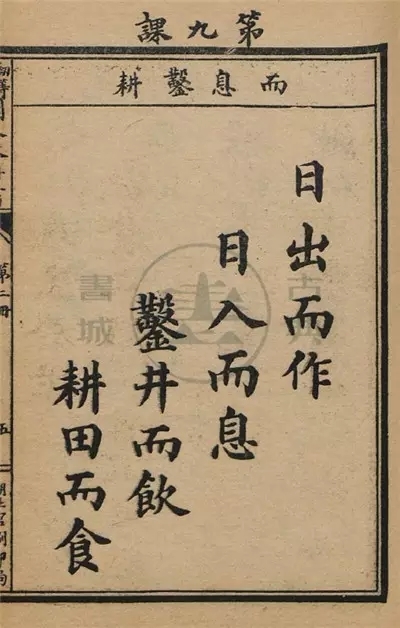 第九課
而息鑿耕
日出而作
日入而息
鑿井而飲
耕田而食
第二冊
五
書城